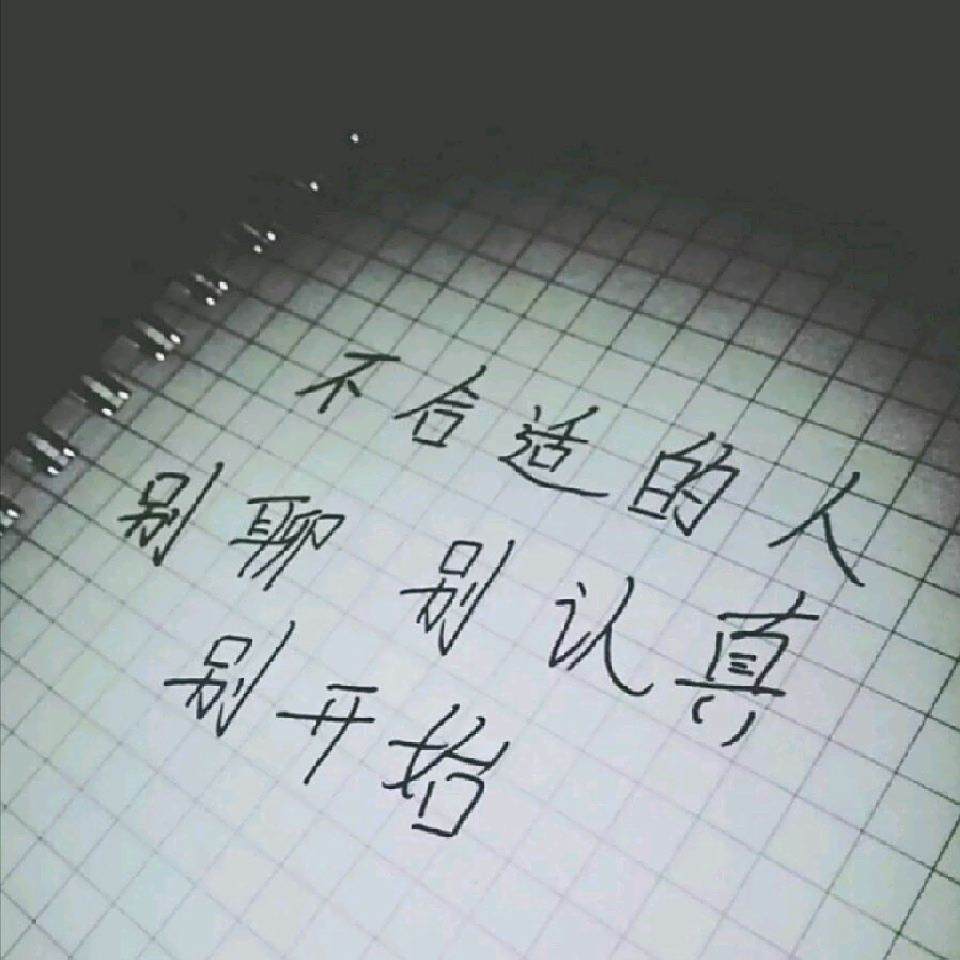 不合适的人
别聊 别认真
别开始